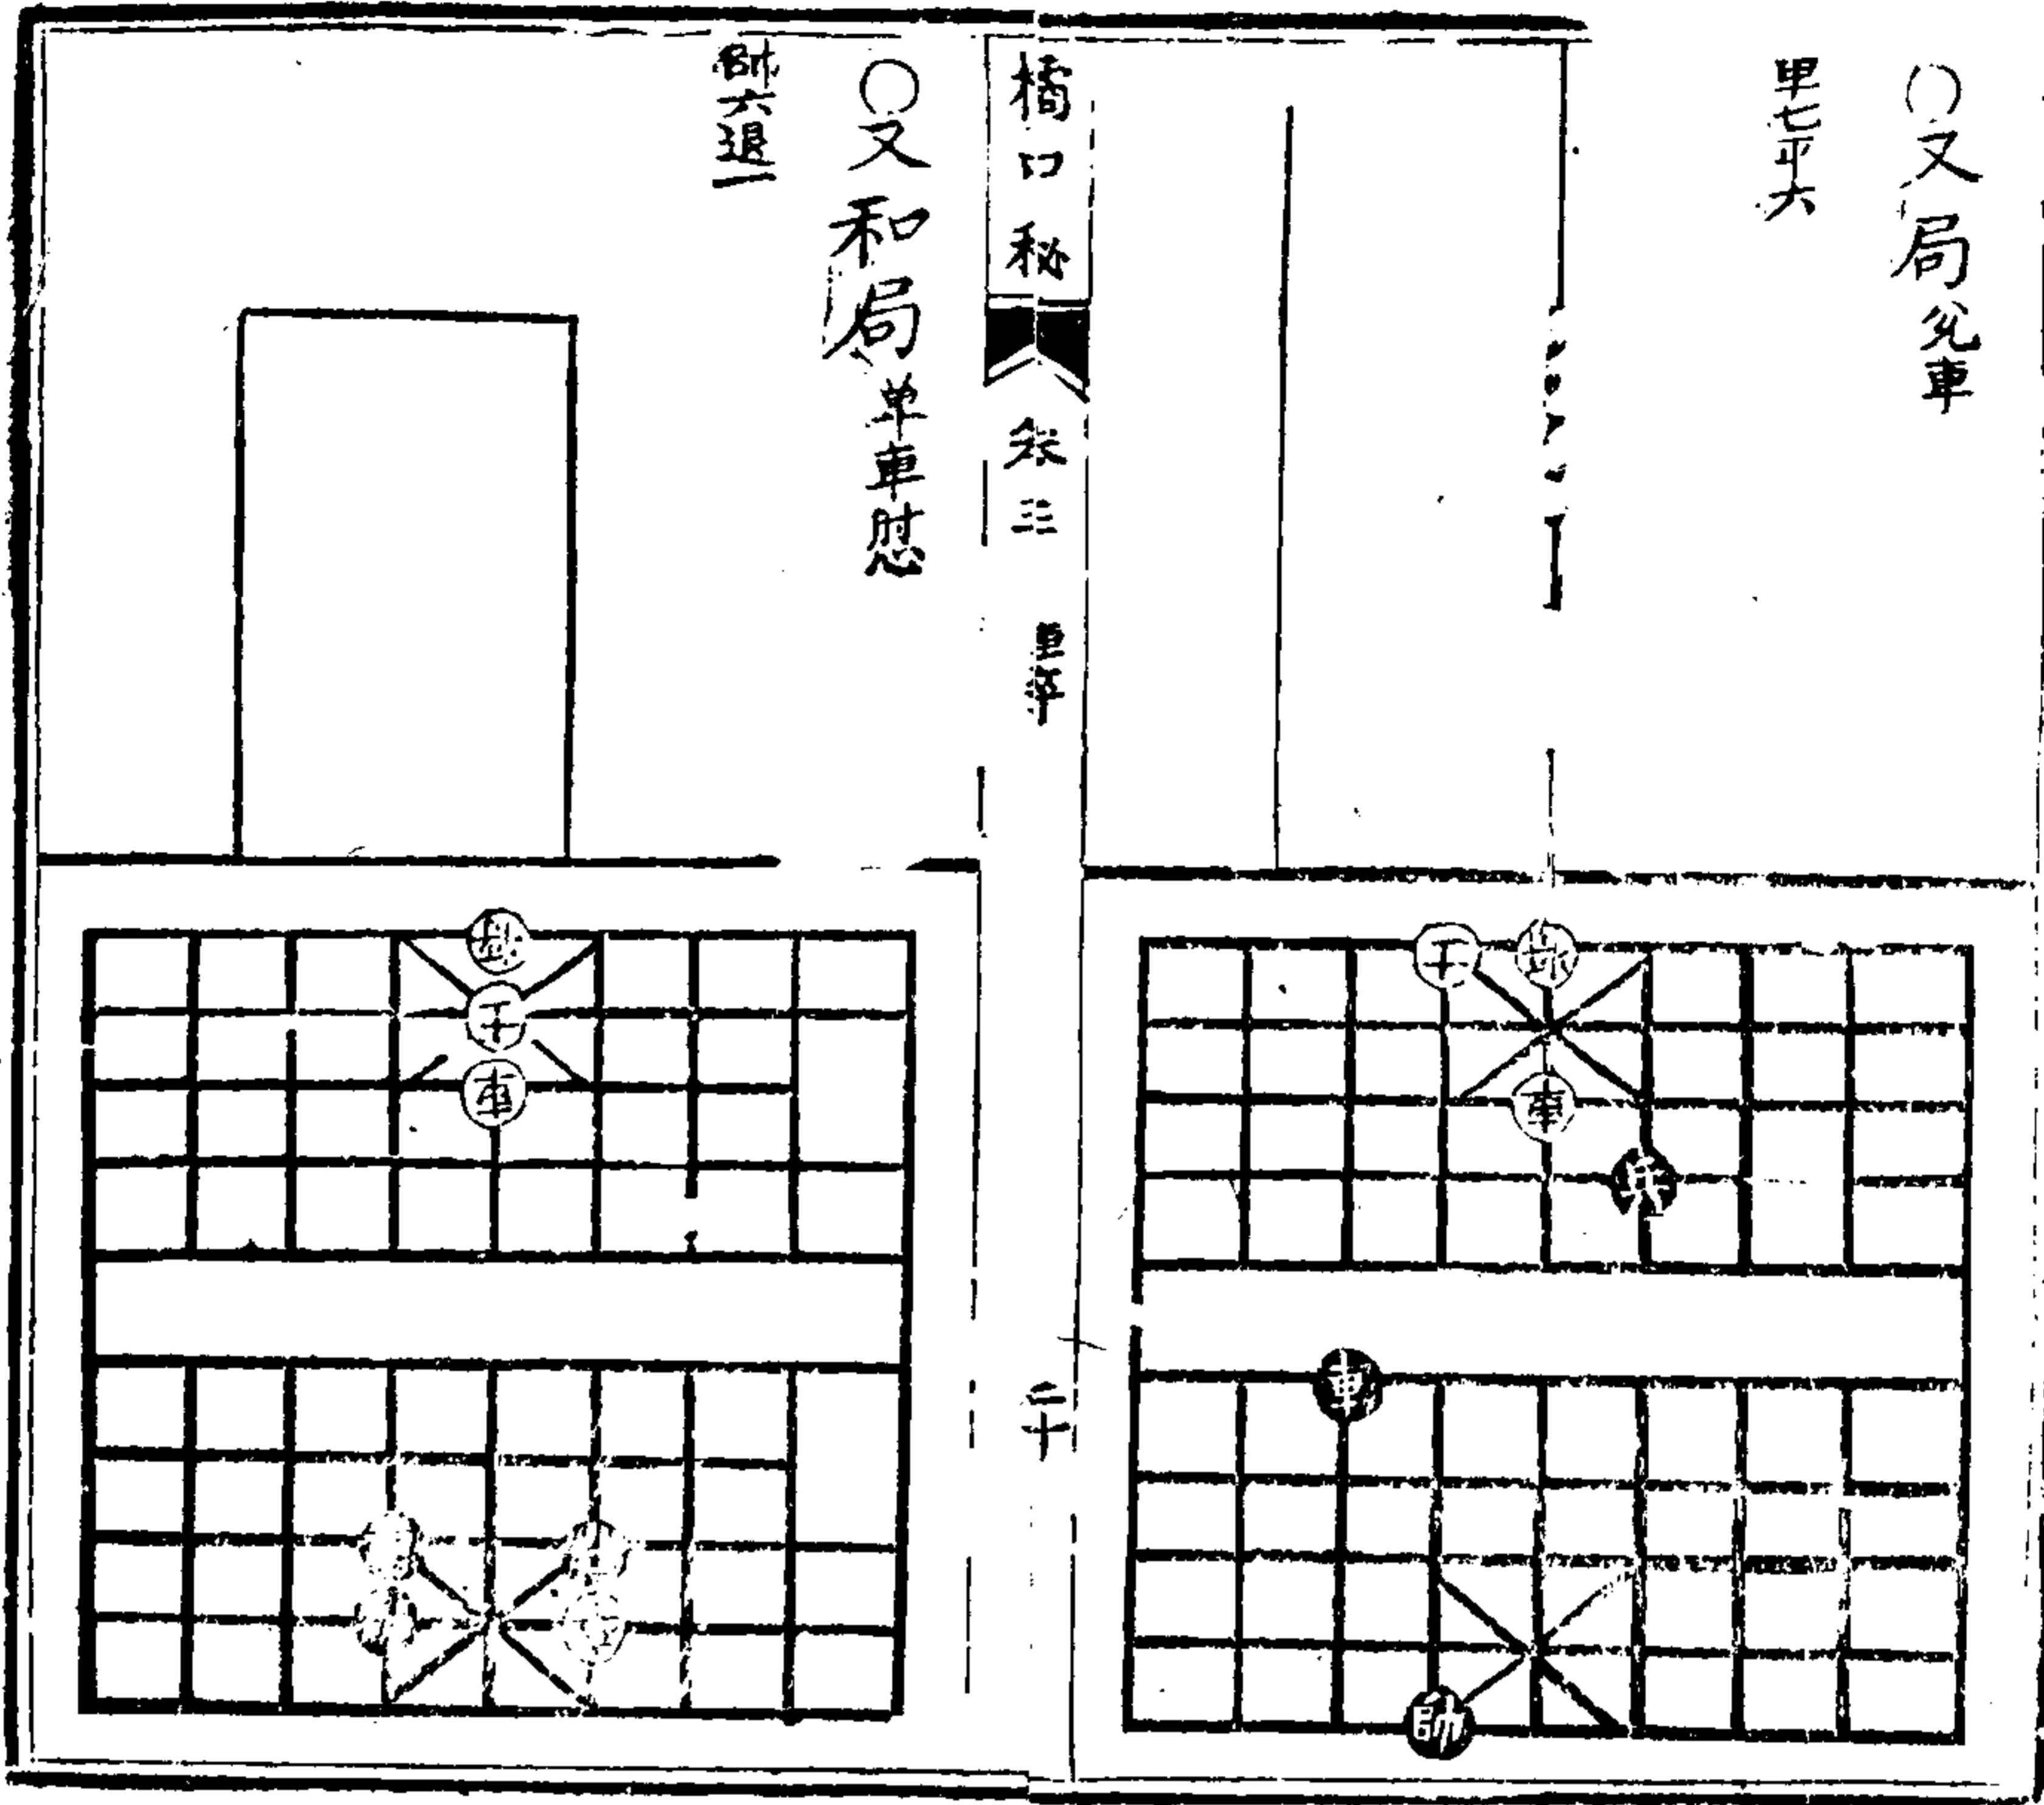 ○又局 兌車
車七平六
士將
車
兵
車
帥
橘中秘 卷三 二十
○又和局 单車
帥六退一
將
士
車